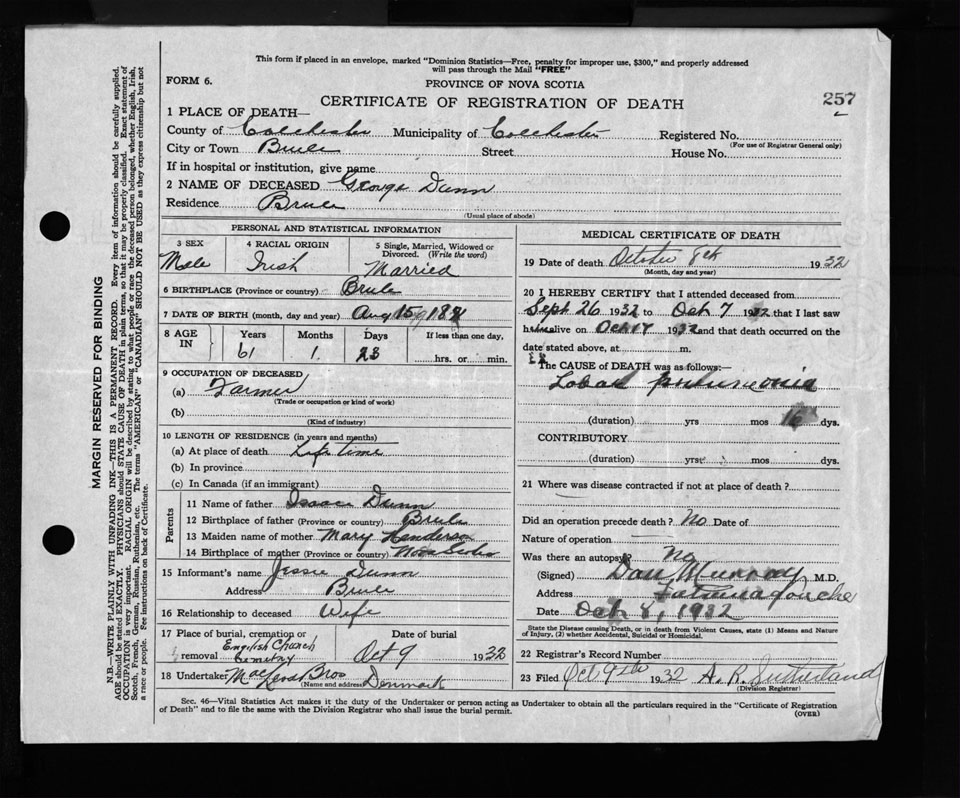 This form if placed in an envelope, marked "Dominion Statistics—Free, penalty for improper use, $300," and properly addressed
will pass through the Mail "FREE"
FORM 6.
PROVINCE OF NOVA SCOTIA
CERTIFICATE OF REGISTRATION OF DEATH
257
1 PLACE OF DEATH—
County of Colchester Municipality of Colchester Registered No.
(For use of Registrar General only)
City or Town Brule Street House No.
If in hospital or institution, give name
2 NAME OF DECEASED George Dunn
Residence Brule
(Usual place of abode)
PERSONAL AND STATISTICAL INFORMATION
3 SEX 4 RACIAL ORIGIN 5 Single, Married, Widowed or
Divorced. (Write the word)
Male Irish Married
6 BIRTHPLACE (Province or country) Brule
7 DATE OF BIRTH (month, day and year) Aug 15
8 AGE IN Years Months Days If less than one day,
61 1 23 hrs. or min.
9 OCCUPATION OF DECEASED
(a) Farmer
(Trade or occupation or kind of work)
(b)
(Kind of industry)
10 LENGTH OF RESIDENCE (in years and months)
(a) At place of death Life time
(b) In province
(c) In Canada (if an immigrant)
Parents
11 Name of father Isaac Dunn
12 Birthplace of father (Province or country) Brule
13 Maiden name of mother Mary Henderson
14 Birthplace of mother (Province or country) Nova Scotia
15 Informant's name Jessie Dunn
Address Brule
16 Relationship to deceased Wife
17 Place of burial, cremation or
removal English Church
Cemetry
Date of burial
Oct 9 1932
18 Undertaker Bros Denmark
(Name and address)
MEDICAL CERTIFICATE OF DEATH
19 Date of death October 8th 1932
(Month, day and year)
20 I HEREBY CERTIFY that I attended deceased from
Sept 26 1932 to Oct 7 1932 that I last saw
him alive on Oct 7 1932 and that death occurred on the
date stated above, at m.
The CAUSE OF DEATH was as follows:—
Lobar pneumonia
(duration) yrs mos 16 dys.
CONTRIBUTORY
(duration) yrs mos dys.
21 Where was disease contracted if not at place of death?
Did an operation precede death? No Date of
Nature of operation
Was there an autopsy? No
(Signed) Dan Murray M.D.
Address Tatamagouche
Date Oct 8, 1932
State the Disease causing Death, or in death from Violent Causes, state (1) Means and Nature
of Injury, (2) whether Accidental, Suicidal or Homicidal.
22 Registrar's Record Number
23 Filed Oct 9th 1932 A. R. Sutherland
(Division Registrar)
Sec. 46—Vital Statistics Act makes it the duty of the Undertaker or person acting as Undertaker to obtain all the particulars required in the "Certificate of Registration
of Death" and to file the same with the Division Registrar who shall issue the burial permit.
(OVER)
MARGIN RESERVED FOR BINDING
N.B.—WRITE PLAINLY WITH UNFADING INK—THIS IS A PERMANENT RECORD. Every item of information should be carefully supplied.
AGE should be stated EXACTLY. PHYSICIANS should STATE CAUSE OF DEATH in plain terms, so that it may be properly classified. Exact statement of
OCCUPATION is very important. RACIAL ORIGIN will be described by stating to what people or race the deceased person belonged, whether English, Irish,
Scotch, French, German, Russian, Ruthenian, etc. The terms "AMERICAN" or "CANADIAN" SHOULD NOT BE USED as they express citizenship but not
a race or people. See instructions on back of Certificate.